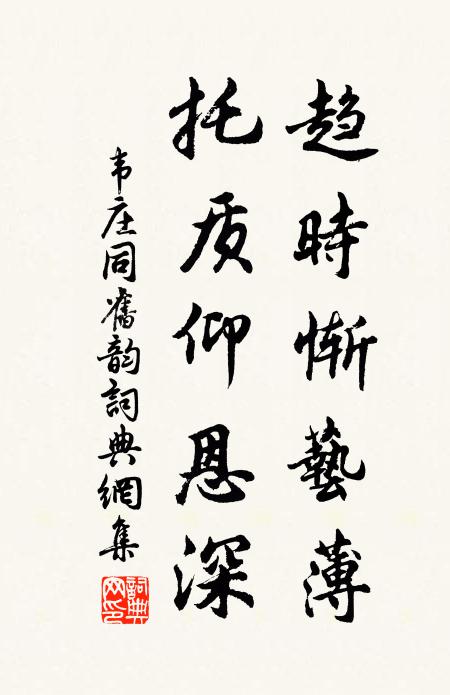 趋時惭藝薄
托质仰恩深
韦庄同舊韵詞典網集
詞典网印